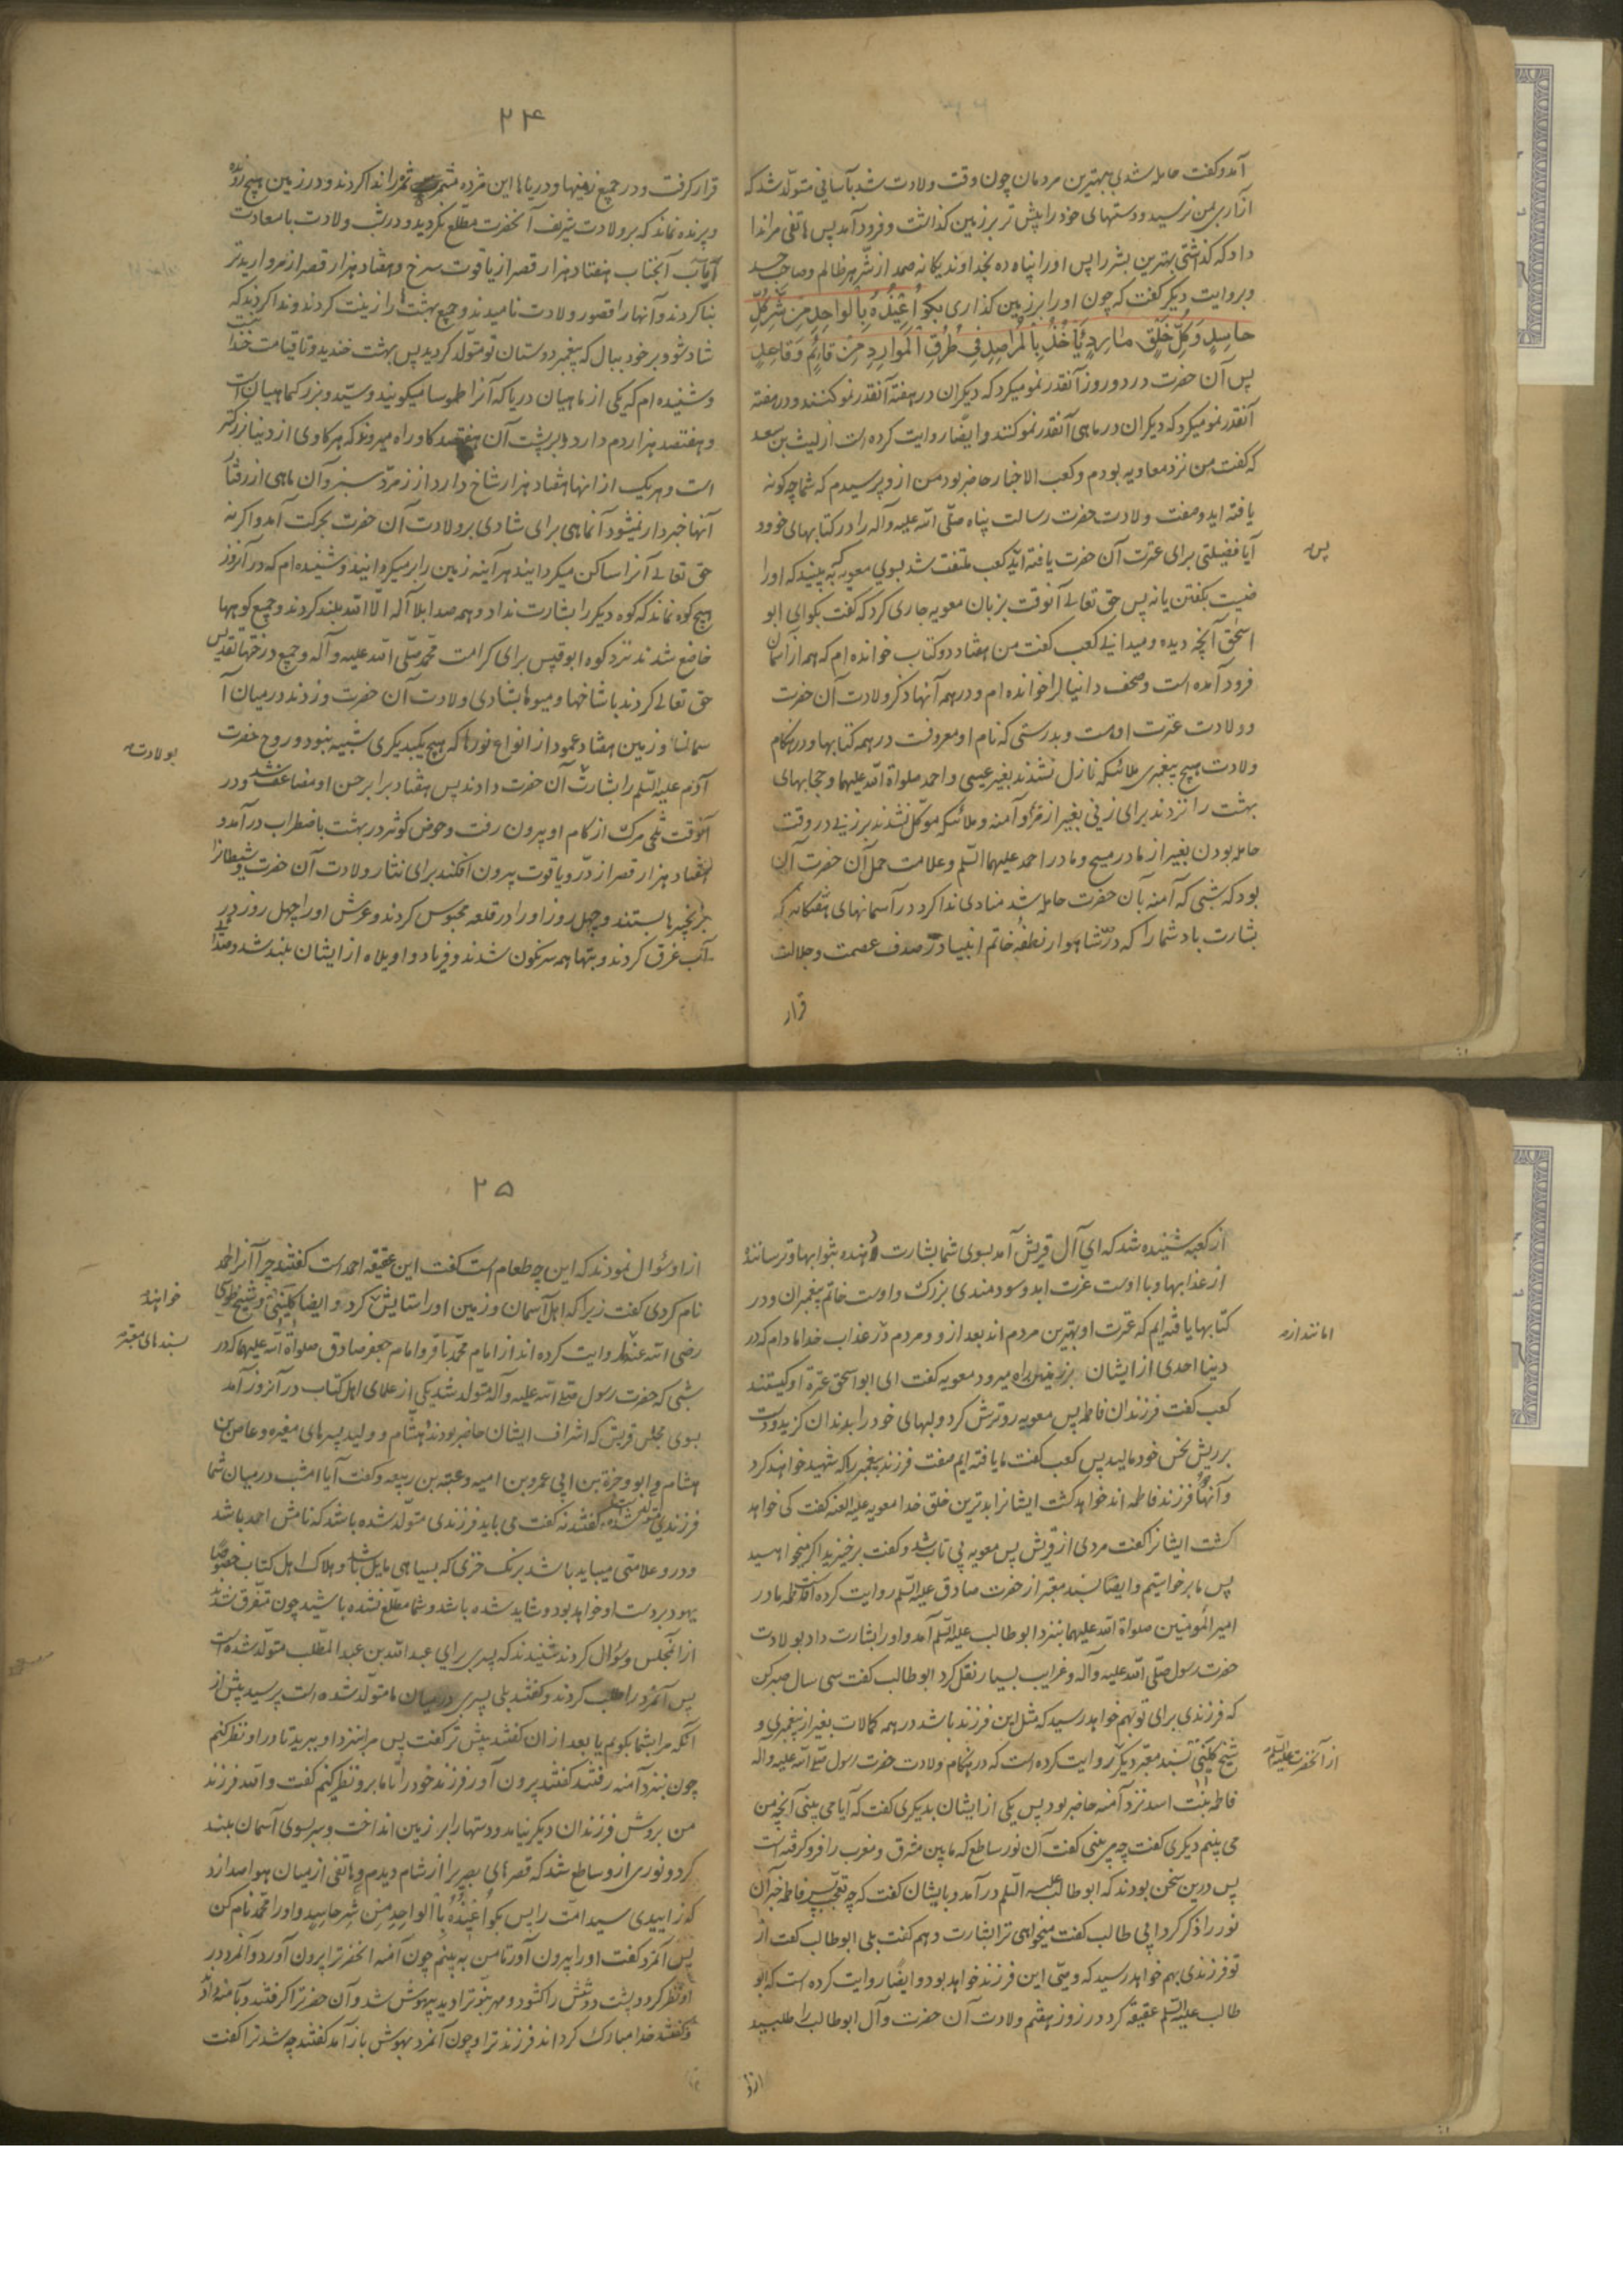 آمد و کفت حامله شدی بهترین مردمان چون وقت ولادت شد بآسانی متولد شد که
آزاری بمن نرسید و دستهای خود را پیش تر بر زمین کذاشت و فرود آمد پس هاتفی مرا ندا
داد که کذاشتی بهترین بشر را پس او را پناه ده بخداوند یکانه صمد از شر هر ظالم و صاحب حسد
و بروایت دیکر کفت که چون او را بر زمین کذاری بکو اُعِیذُهُ بِالواحِدِ مِن شَرِّ کُلِّ
حاسِدٍ وَ کُلِّ خَلقٍ مارِدٍ یَأخُذُ بِالمَراصِدِ فِی طُرُقِ المَوارِدِ مِن قائِمٍ وَ قاعِدٍ
پس آن حضرت در دو روز آنقدر نمو میکرد که دیکران در هفته آنقدر نمو کنند و در هفته
آنقدر نمو میکرد که دیکران در ماهی آنقدر نمو کنند و ایضا روایت کرده است از لیث بن سعد
که کفت من نزد معاویه بودم و کعب الاخبار حاضر بود من از و پرسیدم که شما چه کونه
یافته اید صفت ولادت حضرت رسالت پناه صلی الله علیه و آله را در کتابهای خود و
آیا فضیلتی برای عترت آن حضرت یافته اید کعب ملتفت شد بسوی معویه که به بیند که او را
ضیست بکفتن یا نه پس حق تعالی آنوقت بر زبان معویه جاری کرد که کفت بکو ای ابو
اسحٰق آنچه دیده و میدانی کعب کفت من هفتاد دو کتاب خوانده ام که همه از آسمان
فرود آمده است و صحف دانیال را خوانده ام و در همه آنها ذکر ولادت آن حضرت
و ولادت عترت اوست و بدرستی که نام او معروفست در همه کتابها و در هنکام
ولادت هیچ پیغمبری ملائکه نازل نشدند بغیر عیسی و احمد صلواة الله علیهما و حجابهای
بهشت را نزدند برای زنی بغیر از مریم و آمنه و ملائکه موکل نشدند بر زنی در وقت
حامله بودن بغیر از مادر مسیح و مادر احمد علیهما السلم و علامت حمل آن حضرت آن
بود که شبی که آمنه بآن حضرت حامله شد منادی ندا کرد در آسمانهای هفتکانه که
بشارت باد شما را که در شاهوار نطفه خاتم انبیا در صدف عصمت و جلالت
قرار
پس
۲۴
قرار کرفت و در جمیع زمینها و دریاها این مژده را ندا کردند و در زمین هیچ رونده
و پرنده نماند که بر ولادت شریف آنحضرت مطلع نکردید و در شب ولادت با سعادت
آن آنجناب هفتاد هزار قصر از یاقوت سرخ و هفتاد هزار قصر از مروارید تر
بنا کردند و آنها را قصور ولادت نامیدند و جمیع بهشتها را زینت کردند و ندا کردند که
شاد شو و بر خود ببال که پیغمبر دوستان تو متولد کردید پس بهشت خندید و تا قیامت خندانست
و شنیده ام که یکی از ماهیان دریا که آنرا طموسا میکویند و سید و بزرک ماهیان است
و هفتصد هزار دم دارد و بر پشت آن هفتصد کاو راه میروند که هر کاوی از دنیا بزرکتر
است و هریک از آنها هفتاد هزار شاخ دارد از زمرد سبز و آن ماهی از رفتار
آنها خبردار نمیشود آنماهی برای شادی بر ولادت آن حضرت بحرکت آمد و اکر نه
حق تعالی آنرا ساکن میکردانید هر آینه زمین را بر میکردانید و شنیده ام که در آنروز
هیچ کوه نماند که کوه دیکر را بشارت نداد و همه صدا بلا آله الا الله بلند کردند و جمیع کوهها
خاضع شدند نزد کوه ابوقبیس برای کرامت محمد صلی الله علیه و آله و جمیع درختها تقدیس
حق تعالی کردند با شاخها و میوها بشادی ولادت آن حضرت و زدند در میان آ
سمان و زمین هفتاد عمود از انواع نورها که هیچ یک بدیکری شبیه نبود و روح حضرت
آدم علیه السلم را بشارت آن حضرت دادند پس هفتاد برابر حسن او مضاعف شد و در
آنوقت تلخی مرک از کام او بیرون رفت و حوض کوثر در بهشت باضطراب درآمد و
هفتاد هزار قصر از در و یاقوت بیرون افکند برای نثار ولادت آن حضرت و شیطان را
بزنجیرها بستند و چهل روز او را در قلعه محبوس کردند و عرش او را چهل روز در
آب غرق کردند و بتها همه سرنکون شدند و فریاد و اویلاه از ایشان بلند شد و صدا
بولادت
از کعبه شنیده شد که ای آل قریش آمد بسوی شما بشارت دهنده بثوابها و ترسانندهٔ
از عذابها و با اوست عزت ابد و سودمندی بزرک و اوست خاتم پیغمبران و در
کتابها یافته ایم که عترت او بهترین مردم اند بعد از و و مردم در عذاب خدا مادام که در
دنیا احدی از ایشان بر زمین راه میرود معویه کفت ای ابو اسحق عترة او کیستند
کعب کفت فرزندان فاطمه پس معویه رو ترش کرد و لبهای خود را بدندان کزید و دست
بر ریش نحس خود مالید پس کعب کفت ما یافته ایم صفت فرزند پیغمبر را که شهید خواهند کرد
و آنها فرزند فاطمه اند خواهد کشت ایشانرا بدترین خلق خدا معویه علیه العنه کفت کی خواهد
کشت ایشانرا کفت مردی از قریش پس معویه بی تاب شد و کفت برخیزید اکر میخواهید
پس ما برخواستیم و ایضا بسند معتبر از حضرت صادق علیه السلم روایت کرده است فاطمه مادر
امیر المومنین صلواة الله علیهما بنزد ابوطالب علیه السلم آمد و او را بشارت داد بولادت
حضرت رسول صلی الله علیه و آله و غرایب بسیار نقل کرد ابوطالب کفت سی سال صبر کن
که فرزندی برای تو بهم خواهد رسید که مثل این فرزند باشد در همه کمالات بغیر از پیغمبری و
شیخ کلینی بسند معتبر دیکر روایت کرده است که در هنکام ولادت حضرت رسول صلی الله علیه و آله
فاطمه بنت اسد نزد آمنه حاضر بود پس یکی از ایشان بدیکری کفت که آیا می بینی آنچه من
می بینم دیکری کفت چه می بینی کفت آن نور ساطع که ما بین مشرق و مغرب را فرو کرفته است
پس درین سخن بودند که ابو طالب علیه السلم درآمد و بایشان کفت که چه تعجب پس فاطمه خبر آن
نور را ذکر کرد ابی طالب کفت میخواهی ترا بشارت دهم کفت بلی ابوطالب کفت از
تو فرزندی بهم خواهد رسید که وصی این فرزند خواهد بود و ایضا روایت کرده است که ابو
طالب علیه السلم عقیقه کرد در روز هفتم ولادت آن حضرت و آل ابوطالب را طلبید
از و
امانند از
از آنحضرت علیه السلم
۲۵
از او سؤال نمودند که این چه طعام است کفت این عقیقه احمد است کفتند چرا آنرا احمد
نام کردی کفت زیرا که اهل آسمان و زمین او را ستایش کرد و ایضا کلینی و شیخ طوسی
رضی الله عنهما روایت کرده اند از امام محمد باقر و امام جعفر صادق صلواة الله علیهما که در
شبی که حضرت رسول صلی الله علیه و آله متولد شد یکی از علمای اهل کتاب در آنروز آمد
بسوی مجلس قریش که اشراف ایشان حاضر بودند هشام و ولید پسرهای مغیره و عاص بن
هشام و ابو وخرة بن ابی عمرو بن امیه و عتبه بن ربیعه و کفت آیا امشب در میان شما
فرزندی متولد شده است کفتند نه کفت می باید فرزندی متولد شده باشد که نامش احمد باشد
و در و علامتی میباید باشد برنک خزی که بسیاهی مایل باشد و هلاک اهل کتاب خصوصا
یهود بر دست او خواهد بود و شاید شده باشد و شما مطلع نشده باشید چون متفرق شدند
از آنمجلس و سؤال کردند شنیدند که پسری برای عبد الله بن عبد المطلب متولد شده است
پس آنمرد را طلب کردند و کفتند بلی پسری در میان ما متولد شده است پرسید پیش از
آنکه مرا بشما بکویم یا بعد از ان کفتند پیش تر کفت پس مرا بنزد او ببرید تا در او نظر کنم
چون بنزد آمنه رفتند کفتند بیرون آور فرزند خود را تا ما برو نظر کنیم کفت والله فرزند
من بروش فرزندان دیکر نیامد و دستها را بر زمین انداخت و سر بسوی آسمان بلند
کرد و نوری ازو ساطع شد که قصرهای بصری را از شام دیدم و هاتفی از میان هوا صدا زد
که زاییدی سید امت را پس بکو اُعِیذُهُ بِالواحِدِ مِن شر حاسِدٍ و او را محمد نام کن
پس آنمرد کفت او را بیرون آور تا من به بینم چون آمنه انحضرترا بیرون آورد و آنمرد در
او نظر کرد و پشت دوشش را کشود و مهر نبوترا دید بیهوش شد و آن حضرترا کرفتند و بآمنه دادند
و کفتند خدا مبارک کرداند فرزند ترا و چون آنمرد بهوش باز آمد کفتند چه شد ترا کفت
بسندهای معتبر